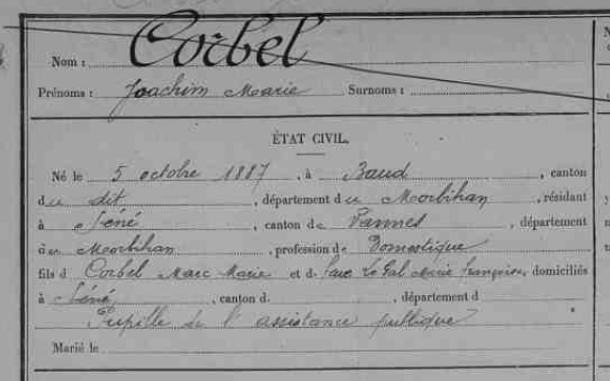 Nom : Corbel
Prénoms : Joachim Marie Surnoms :
ÉTAT CIVIL.
Né le 5 octobre 1887, à Baud, canton
du dit, département du Morbihan, résidant
à Séné, canton de Vannes, département
du Morbihan, profession de Domestique
fils d Corbel Marc Marie et d. feue Le Gal Marie françoise, domiciliés
à Séné, canton d. , département d
Pupille de l'assistance publique
Marié le